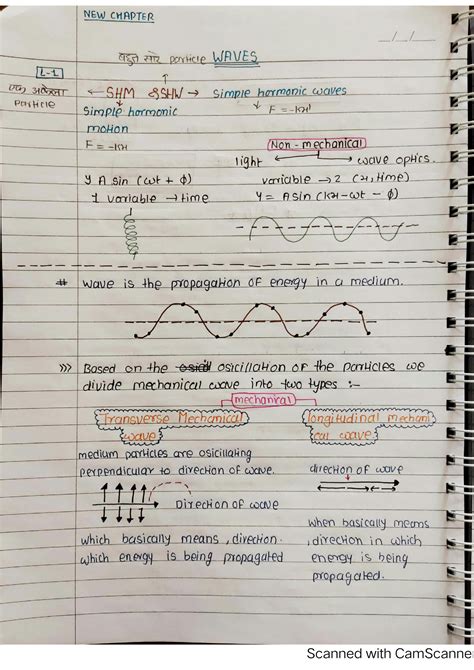 NEW CHAPTER
__/__/__
बहुत सारे particle WAVES
L-1
एक अकेला particle
← SHM & SHW → Simple hormonic waves
Simple hormonic motion
F = -Kx
F = -Kx
Non-mechanical
light
wave optics.
y A sin (ωt + ϕ)
variable → 2 (x, time)
1 variable → time
Y = A sin (Kx - ωt - ϕ)
# Wave is the propagation of energy in a medium.
>>> Based on the osicillation of the particles we
divide mechanical wave into two types :-
mechanical
Transverse Mechanical
wave
longitudinal mechani
cal wave
medium particles are osicillating
perpendicular to direction of wave.
direction of wave
Direction of wave
which basically means, direction.
which energy is being propagated
When basically means
, direction in which
energy is being
propagated.
Scanned with CamScanne